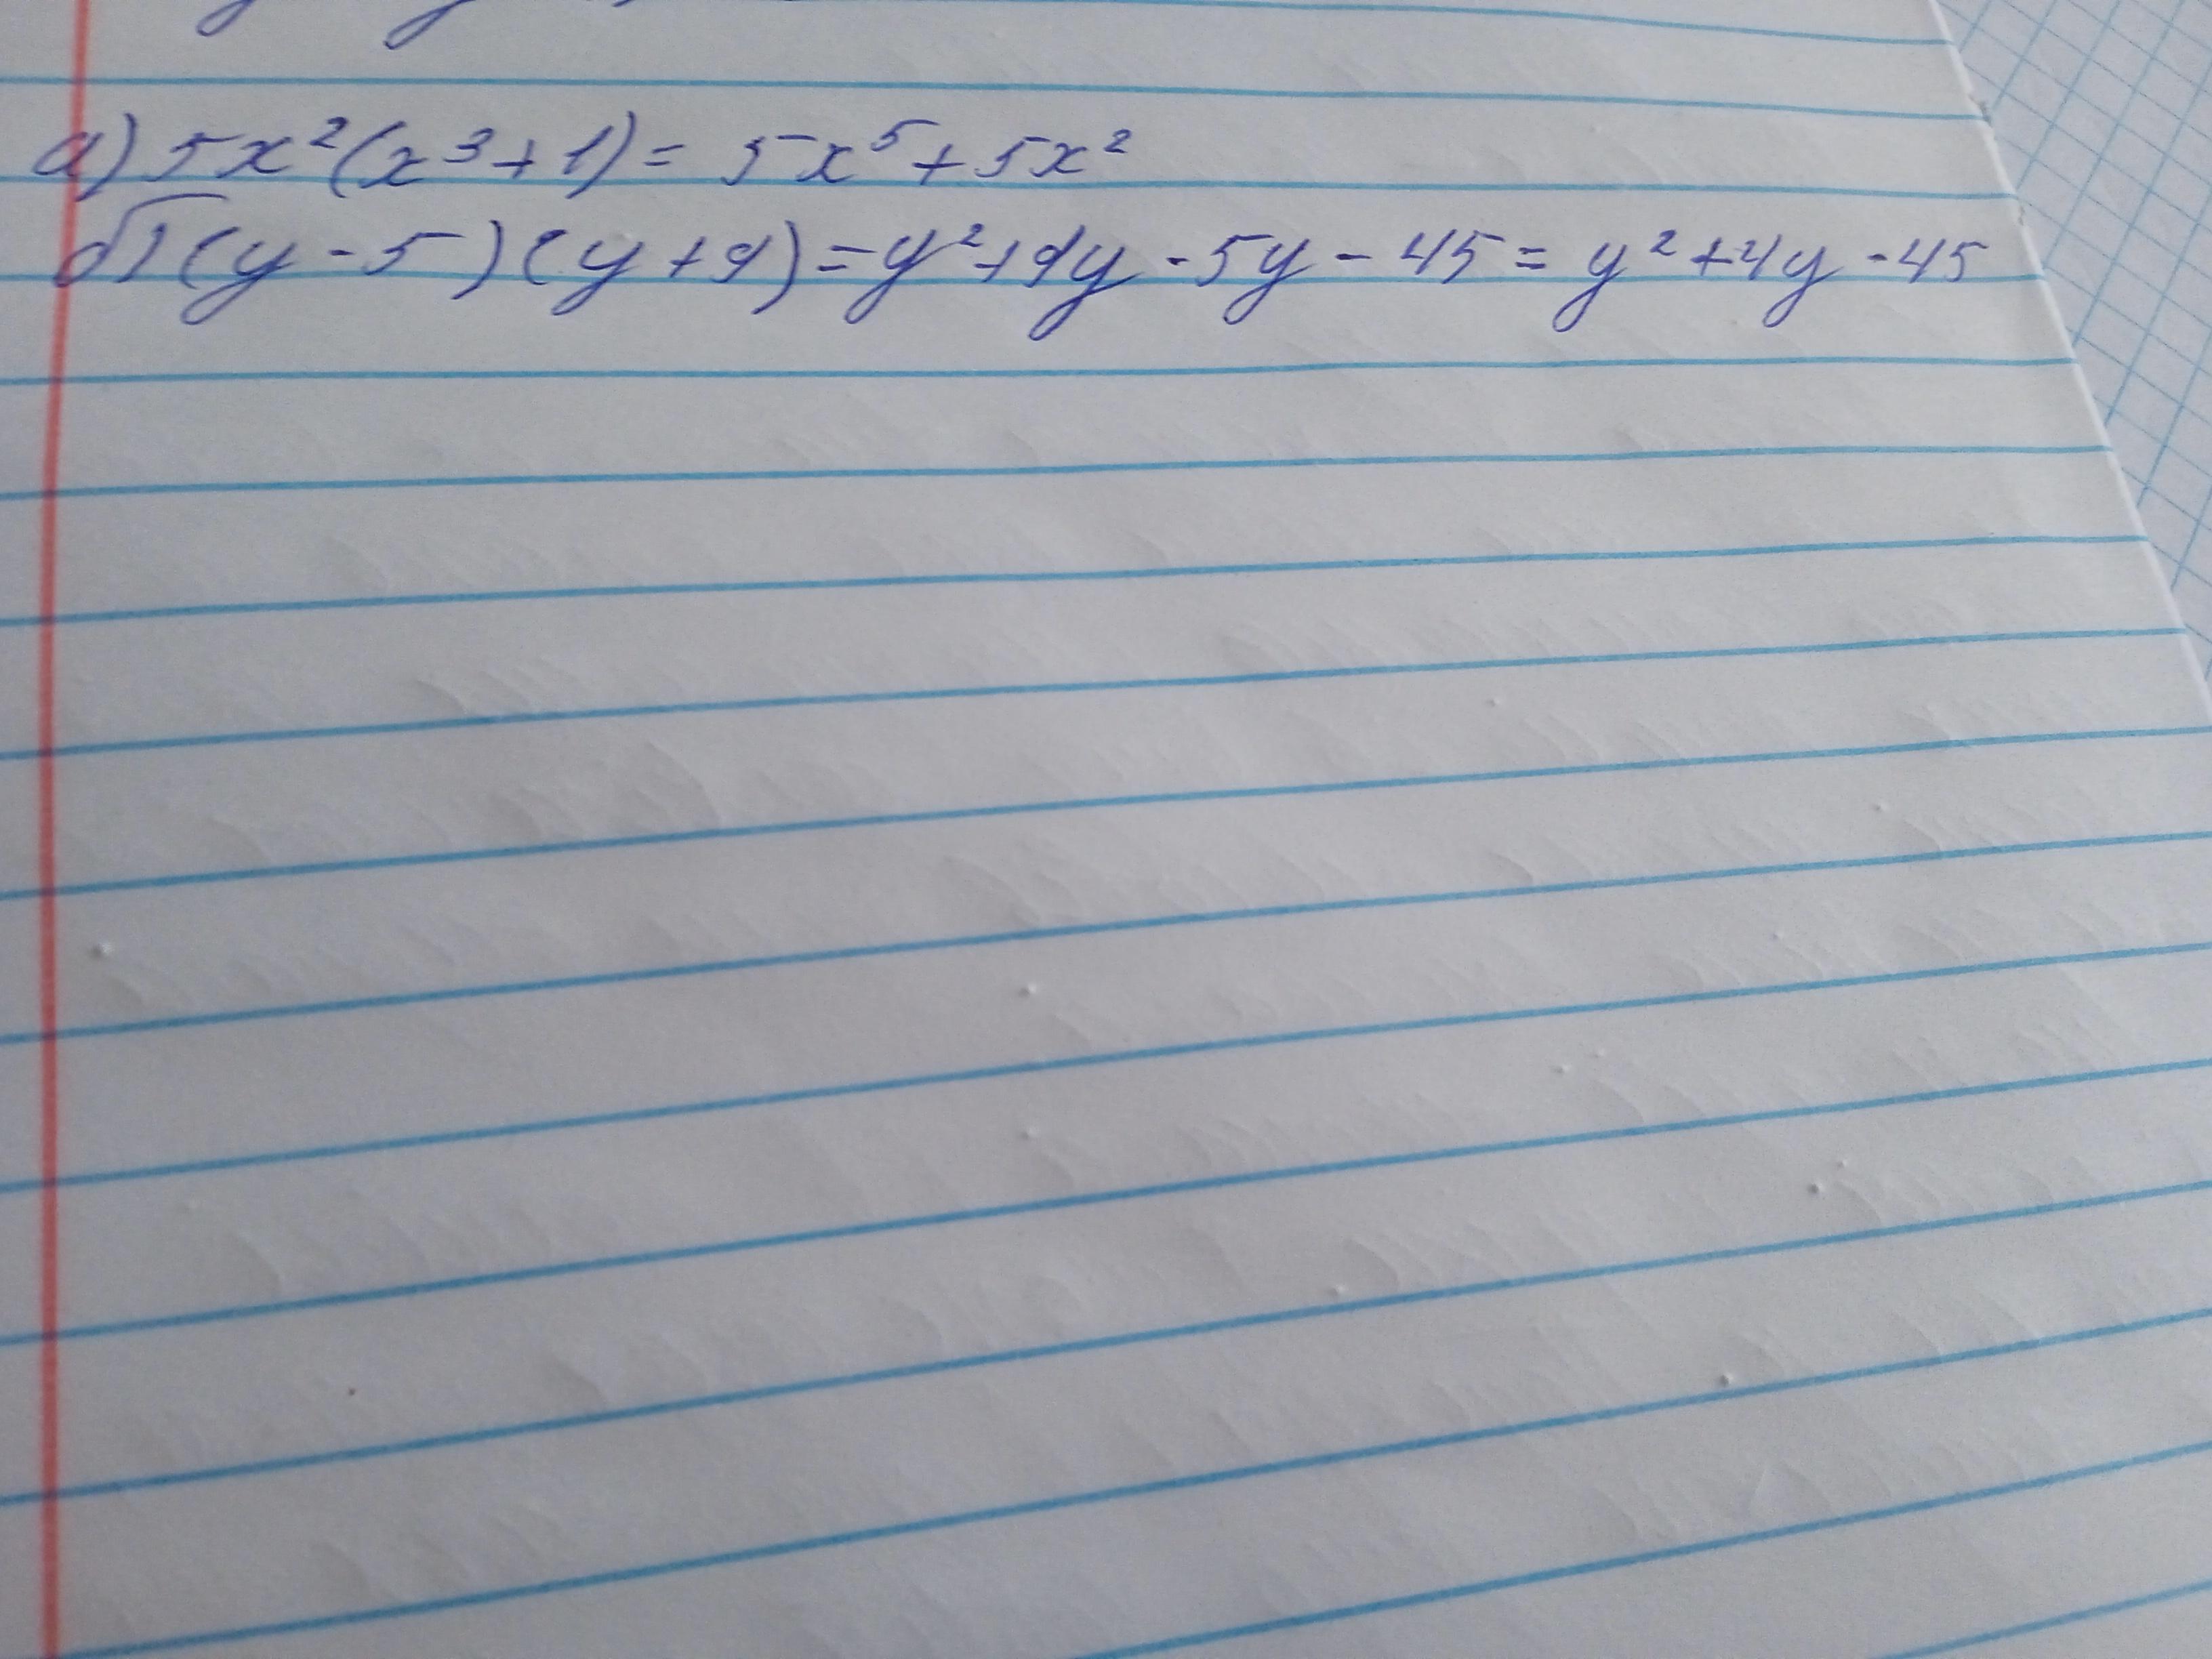 а) 5x²(x³+1)= 5x⁵+5x²
б) (y-5)(y+9)=y²+9y-5y-45=y²+4y-45